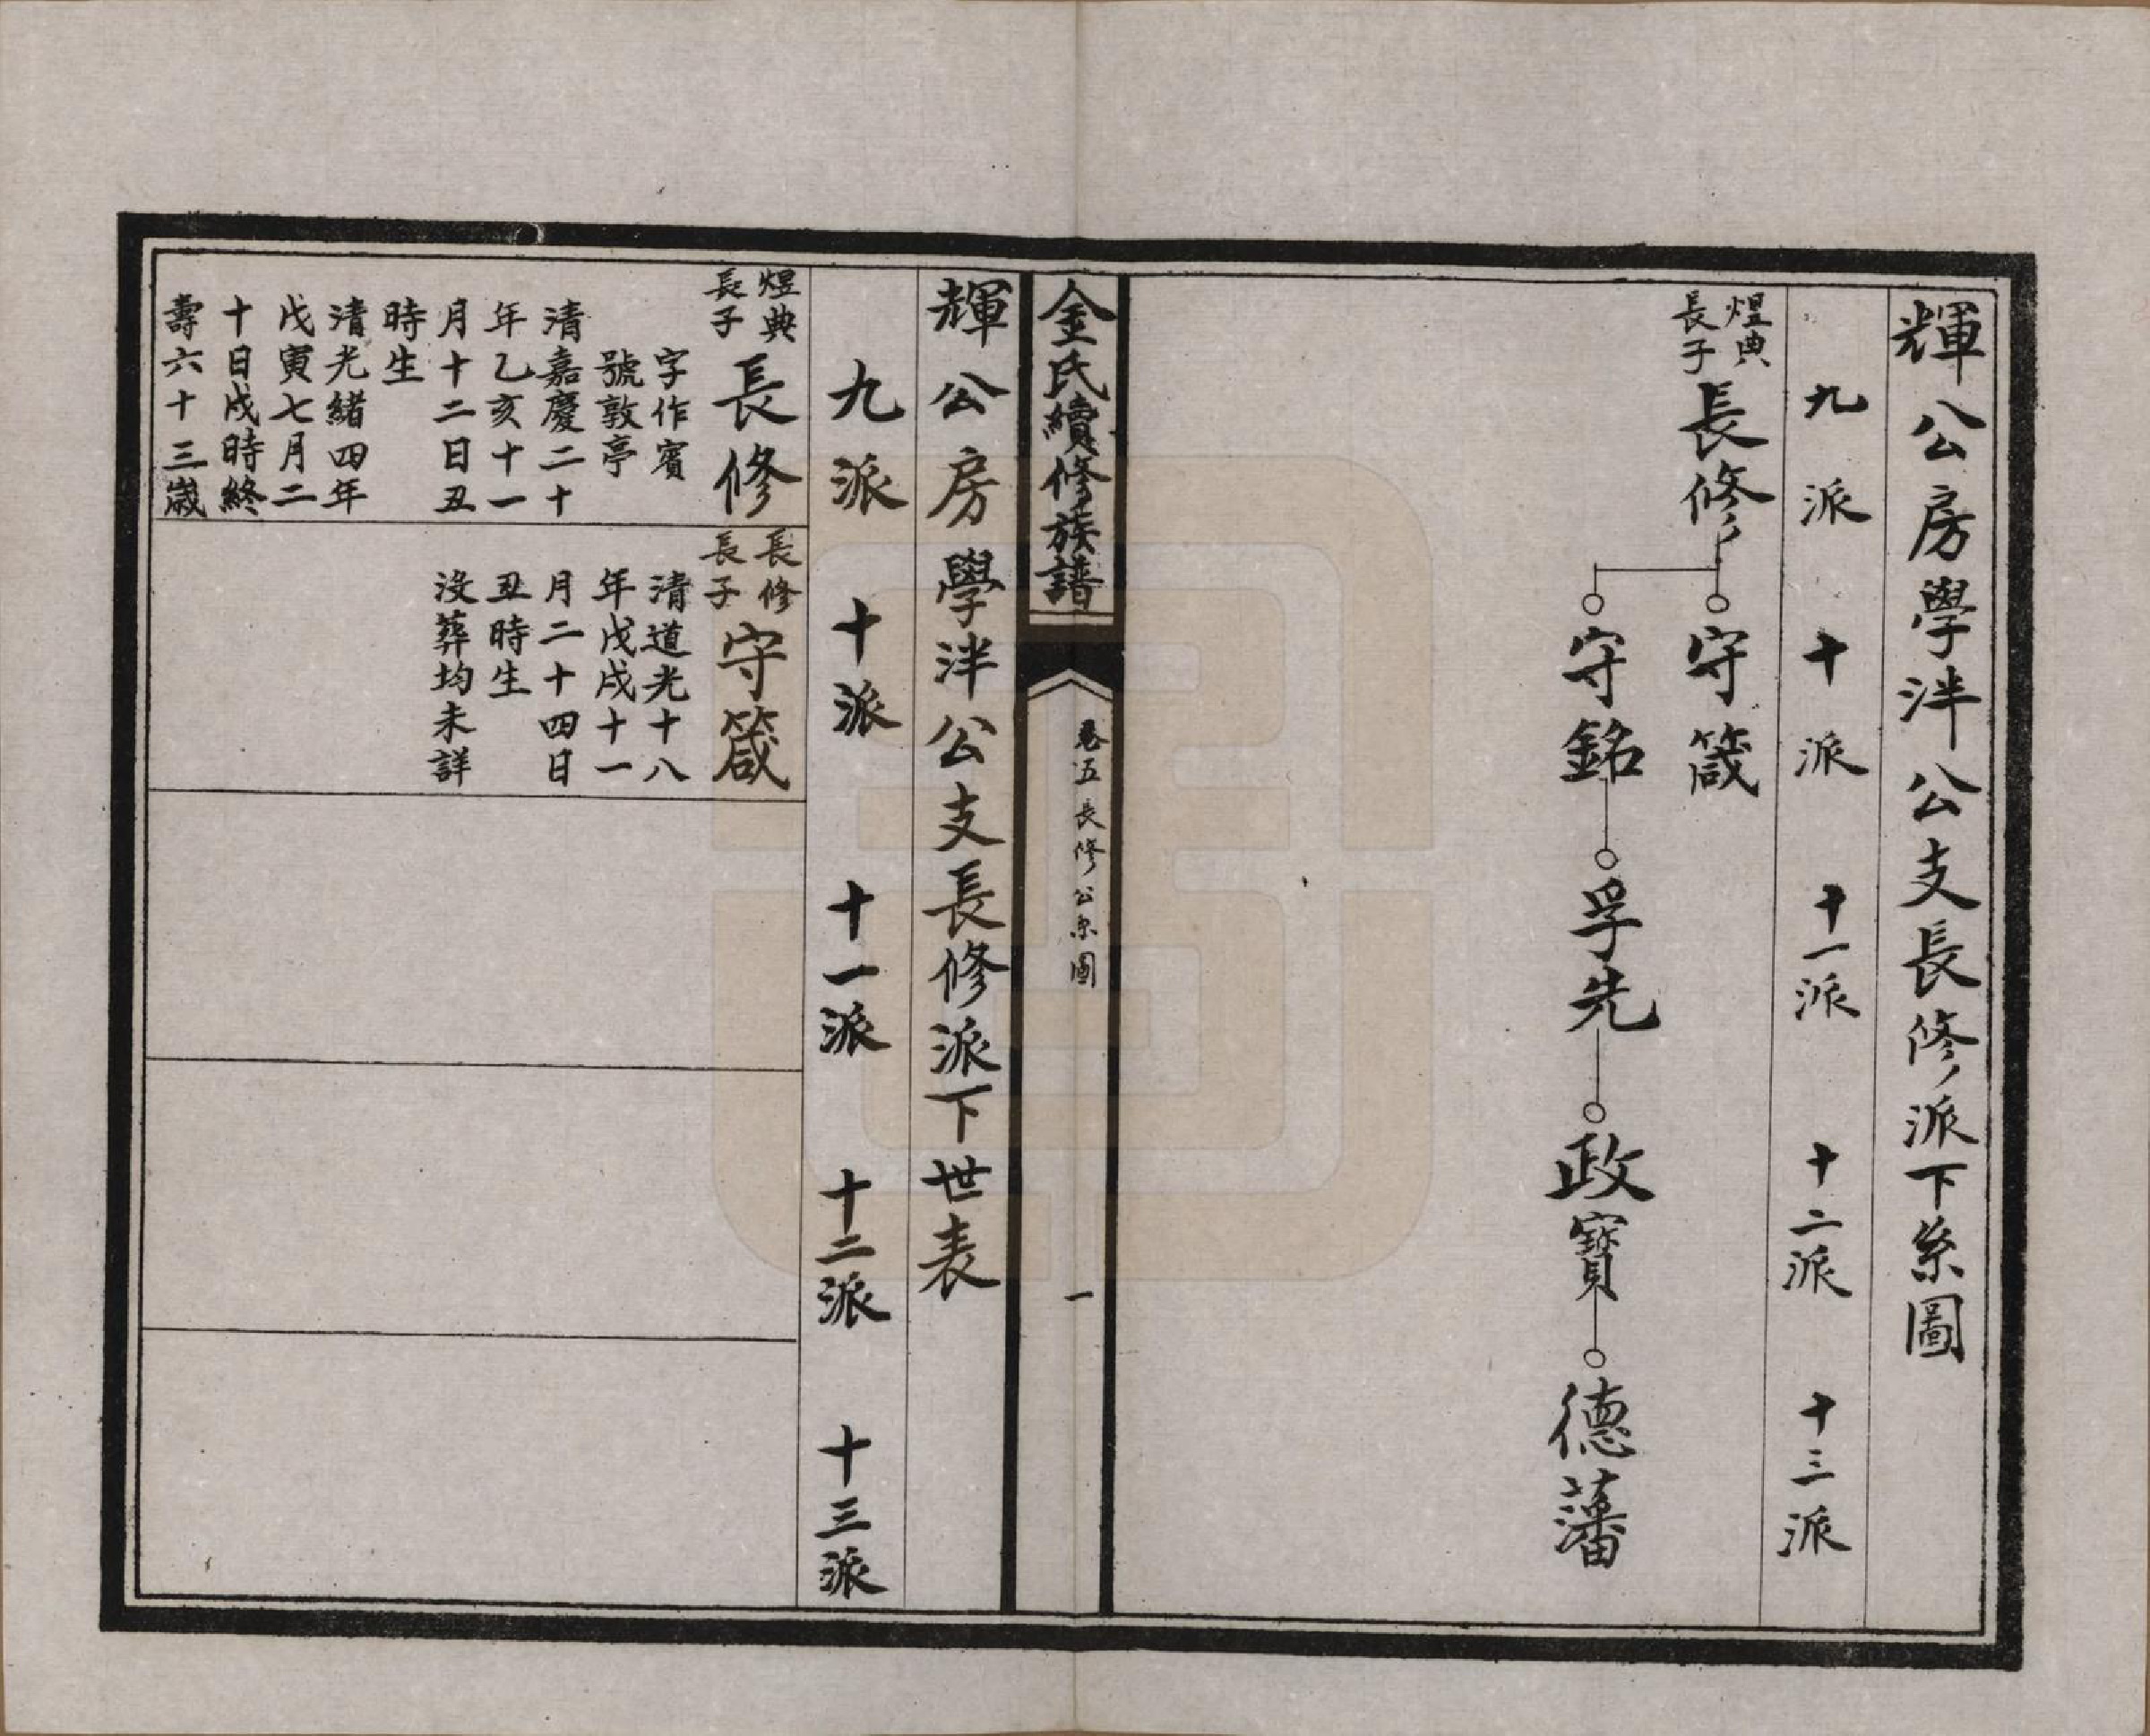 輝公房學泮公支長修派下系圖
九派　十派　十一派　十二派　十三派
煜典
長子
長修
守箴
守銘　孚先　政寶　德藩
金氏續修族譜
卷五 長修公系圖
一
輝公房學泮公支長修派下世表
九派　十派　十一派　十二派　十三派
煜典
長子
長修
字作賓
號敦亭
清嘉慶二十
年乙亥十一
月十二日丑
時生
清光緒四年
戊寅七月二
十日戌時終
壽六十三歲
長修
長子
守箴
清道光十八
年戊戌十一
月二十四日
丑時生
沒葬均未詳